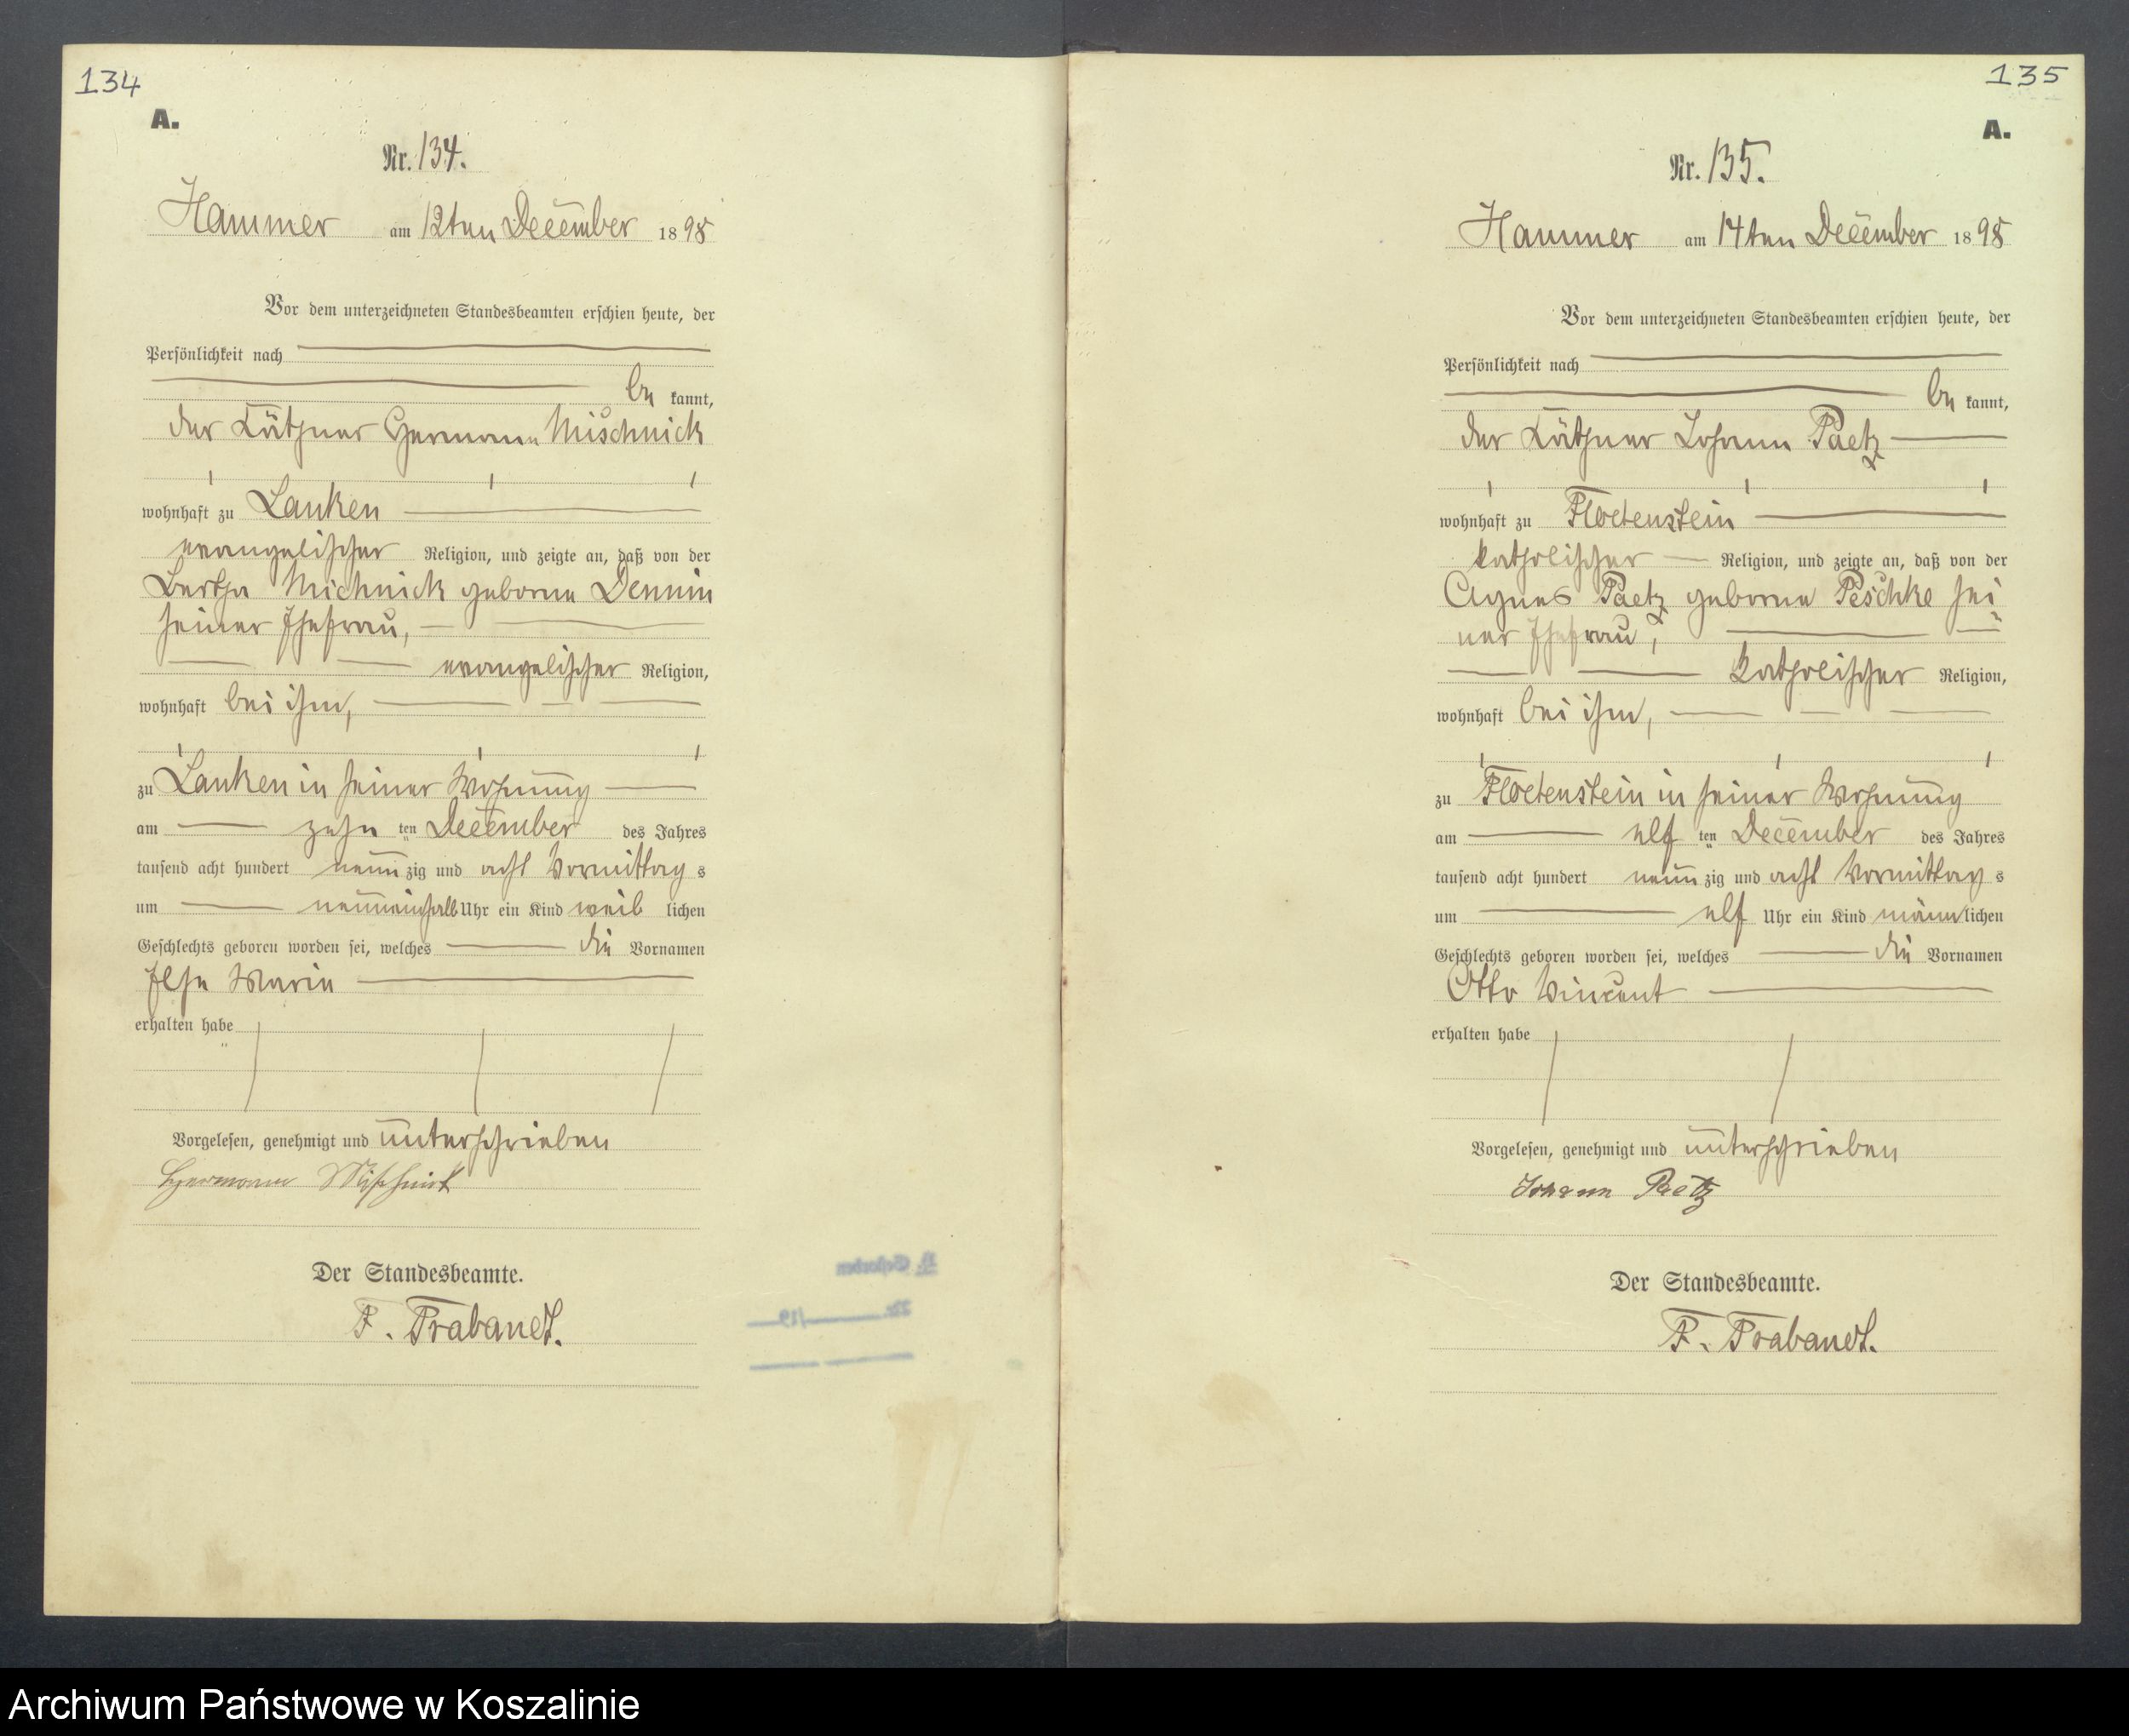 134
A.
Nr. 134.
Hammer am 12ten December 1898
Vor dem unterzeichneten Standesbeamten erschien heute, der
Persönlichkeit nach
be kannt,
der Käthner Hermann Mischnick
wohnhaft zu Lanken
evangelischer Religion, und zeigte an, daß von der
Bertha Michnick geborne Demmin
seiner Ehefrau,
evangelischer Religion,
wohnhaft bei ihm,
zu Lanken in seiner Wohnung
am zehn ten December des Jahres
tausend acht hundert neun zig und acht Vormittag s
um neuneinhalb Uhr ein Kind weib lichen
Geschlechts geboren worden sei, welches die Vornamen
Else Marie
erhalten habe
Vorgelesen, genehmigt und unterschrieben
Hermann Mischnick
Der Standesbeamte.
F. Trabandt.
135
A.
Nr. 135.
Hammer am 14ten December 1898
Vor dem unterzeichneten Standesbeamten erschien heute, der
Persönlichkeit nach
be kannt,
der Käthner Johann Paetz
wohnhaft zu Floetenstein
katholischer Religion, und zeigte an, daß von der
Agnes Paetz geborne Peschke sei
ner Ehefrau,
katholischer Religion,
wohnhaft bei ihm,
zu Floetenstein in seiner Wohnung
am elf ten December des Jahres
tausend acht hundert neun zig und acht Vormittag s
um elf Uhr ein Kind männ lichen
Geschlechts geboren worden sei, welches die Vornamen
Otto Vincent
erhalten habe
Vorgelesen, genehmigt und unterschrieben
Johann Paetz
Der Standesbeamte.
F. Trabandt.
Archiwum Państwowe w Koszalinie